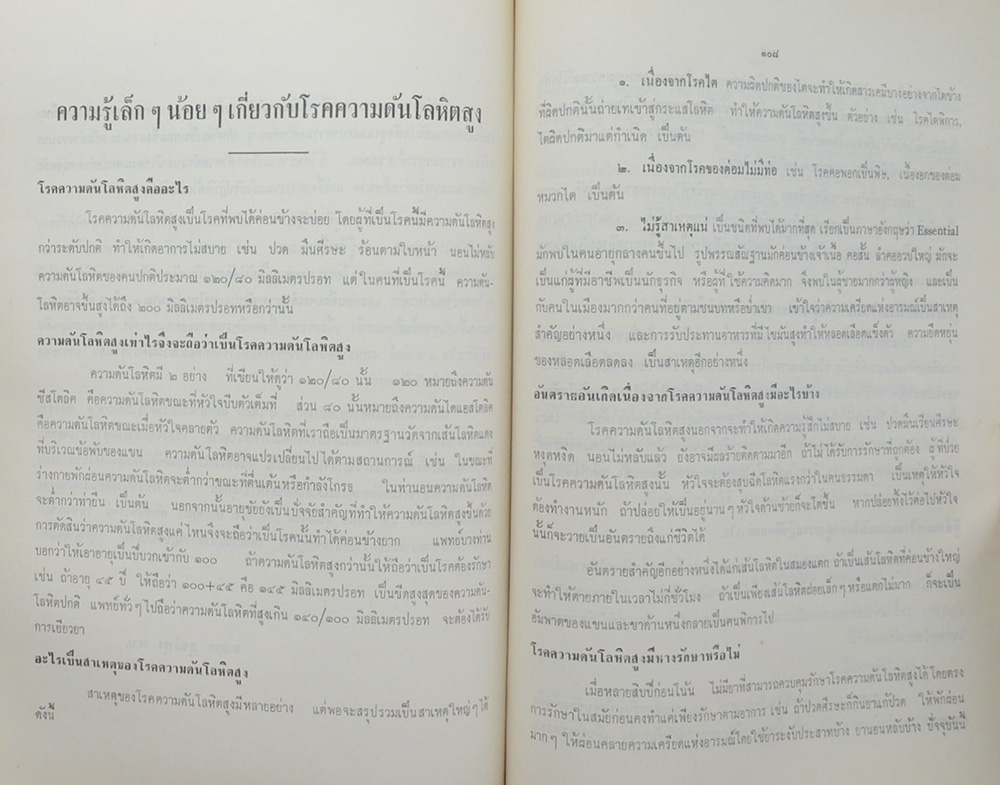 ความรู้เล็ก ๆ น้อย ๆ เกี่ยวกับโรคความดันโลหิตสูง
โรคความดันโลหิตสูงคืออะไร
โรคความดันโลหิตสูงเป็นโรคที่พบได้ค่อนข้างจะบ่อย โดยผู้ที่เป็นโรคนี้มีความดันโลหิตสูง
กว่าระดับปกติ ทำให้เกิดอาการไม่สบาย เช่น ปวด มึนศีรษะ ร้อนตามใบหน้า นอนไม่หลับ
ความดันโลหิตของคนปกติประมาณ ๑๒๐/๘๐ มิลลิเมตรปรอท แต่ในคนที่เป็นโรคนี้ ความดัน-
โลหิตอาจขึ้นสูงได้ถึง ๒๐๐ มิลลิเมตรปรอทหรือกว่านั้น
ความดันโลหิตสูงเท่าไรจึงจะถือว่าเป็นโรคความดันโลหิตสูง
ความดันโลหิตมี ๒ อย่าง ที่เขียนให้ดูว่า ๑๒๐/๘๐ นั้น ๑๒๐ หมายถึงความดัน
ซีสโตลิค คือความดันโลหิตขณะที่หัวใจบีบตัวเต็มที่ ส่วน ๘๐ นั้นหมายถึงความดันไดแอสโตลิค
คือความดันโลหิตขณะเมื่อหัวใจคลายตัว ความดันโลหิตที่เราถือเป็นมาตรฐานวัดจากเส้นโลหิตแดง
ที่บริเวณข้อพับของแขน ความดันโลหิตอาจแปรเปลี่ยนไปได้ตามสถานการณ์ เช่น ในขณะที่
ร่างกายพักผ่อนความดันโลหิตจะต่ำกว่าขณะที่ตื่นเต้นหรือกำลังโกรธ ในท่านอนความดันโลหิต
จะต่ำกว่าท่ายืน เป็นต้น นอกจากนั้นอายุขัยยังเป็นปัจจัยสำคัญที่ทำให้ความดันโลหิตสูงขึ้นด้วย
การตัดสินว่าความดันโลหิตสูงแค่ไหนจึงจะถือว่าเป็นโรคนั้นทำได้ค่อนข้างยาก แพทย์บางท่าน
บอกว่าให้เอาอายุเป็นปีบวกเข้ากับ ๑๐๐ ถ้าความดันโลหิตสูงกว่านั้นให้ถือว่าเป็นโรคต้องรักษา
เช่น ถ้าอายุ ๔๕ ปี ให้ถือว่า ๑๐๐+๔๕ คือ ๑๔๕ มิลลิเมตรปรอท เป็นขีดสูงสุดของความดัน-
โลหิตปกติ แพทย์ทั่วๆ ไปถือว่าความดันโลหิตที่สูงเกิน ๑๔๐/๑๐๐ มิลลิเมตรปรอท จะต้องได้รับ
การเยียวยา
อะไรเป็นสาเหตุของโรคความดันโลหิตสูง
สาเหตุของโรคความดันโลหิตสูงมีหลายอย่าง แต่พอจะสรุปรวมเป็นสาเหตุใหญ่ๆ ได้
ดังนี้
๑๐๘
๑. เนื่องจากโรคไต ความผิดปกติของไตจะทำให้เกิดสารเคมีบางอย่างจากไตข้าง
ที่ผิดปกตินั้นถ่ายเทเข้าสู่กระแสโลหิต ทำให้ความดันโลหิตสูงขึ้น ตัวอย่าง เช่น โรคไตพิการ,
ไตผิดปกติมาแต่กำเนิด เป็นต้น
๒. เนื่องจากโรคของต่อมไม่มีท่อ เช่น โรคคอพอกเป็นพิษ, เนื้องอกของต่อม
หมวกไต เป็นต้น
๓. ไม่รู้สาเหตุแน่ เป็นชนิดที่พบได้มากที่สุด เรียกเป็นภาษาอังกฤษว่า Essential
มักพบในคนอายุกลางคนขึ้นไป รูปพรรณสัณฐานมักค่อนข้างเจ้าเนื้อ คอสั้น ลำคออวบใหญ่ มักจะ
เป็นแก่ผู้ที่มีอาชีพเป็นนักธุรกิจ หรือผู้ที่ใช้ความคิดมาก จึงพบในผู้ชายมากกว่าผู้หญิง และเป็น
กับคนในเมืองมากกว่าคนที่อยู่ตามชนบทหรือป่าเขา เข้าใจว่าความเครียดแห่งอารมณ์เป็นสาเหตุ
สำคัญอย่างหนึ่ง และการรับประทานอาหารที่มีไขมันสูงทำให้หลอดเลือดแข็งตัว ความยืดหยุ่น
ของหลอดเลือดลดลง เป็นสาเหตุอีกอย่างหนึ่ง
อันตรายอันเกิดเนื่องจากโรคความดันโลหิตสูงมีอะไรบ้าง
โรคความดันโลหิตสูงนอกจากจะทำให้เกิดความรู้สึกไม่สบาย เช่น ปวดมึนเวียนศีรษะ
หงุดหงิด นอนไม่หลับแล้ว ยังอาจมีผลร้ายติดตามมาอีก ถ้าไม่ได้รับการรักษาที่ถูกต้อง ผู้ที่ป่วย
เป็นโรคความดันโลหิตสูงนั้น หัวใจจะต้องสูบฉีดโลหิตแรงกว่าในคนธรรมดา เป็นเหตุให้หัวใจ
ต้องทำงานหนัก ถ้าปล่อยให้เป็นอยู่นาน ๆ หัวใจด้านซ้ายก็จะโตขึ้น หากปล่อยทิ้งไว้ต่อไปหัวใจ
นั้นก็จะวายเป็นอันตรายถึงแก่ชีวิตได้
อันตรายสำคัญอีกอย่างหนึ่งได้แก่เส้นโลหิตในสมองแตก ถ้าเป็นเส้นโลหิตที่ค่อนข้างใหญ่
จะทำให้ตายภายในเวลาไม่กี่ชั่วโมง ถ้าเป็นเพียงเส้นโลหิตฝอยเล็กๆ หรือแตกไม่มาก ก็จะเป็น
อัมพาตของแขนและขาด้านหนึ่งกลายเป็นคนพิการไป
โรคความดันโลหิตสูงมีทางรักษาหรือไม่
เมื่อหลายสิบปีก่อนโน้น ไม่มียาที่สามารถควบคุมรักษาโรคความดันโลหิตสูงได้โดยตรง
การรักษาในสมัยก่อนคงทำแค่เพียงรักษาตามอาการ เช่น ถ้าปวดศีรษะก็กินยาแก้ปวด ให้พักผ่อน
มากๆ ให้ผ่อนคลายความเครียดแห่งอารมณ์โดยใช้ยาระงับประสาทบ้าง ยานอนหลับบ้าง ปัจจุบันนี้